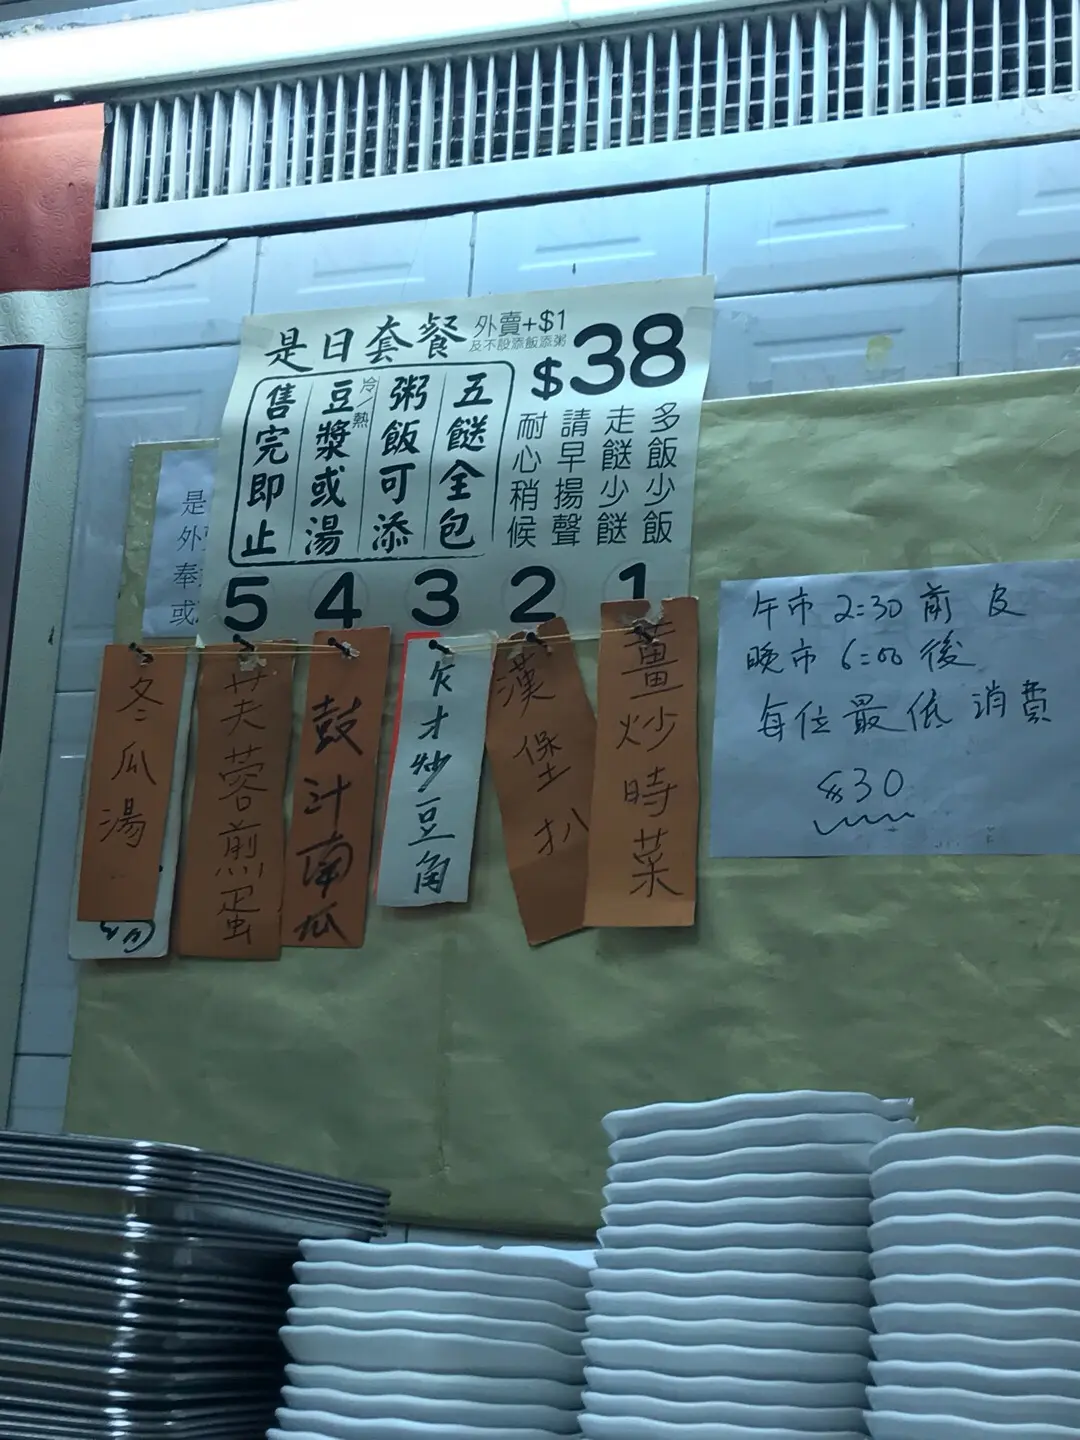 是日套餐
外賣+$1
及不設添飯添粥
$38
五餸全包
粥飯可添
豆漿或湯
冷/熱
售完即止
多飯少飯
走餸少餸
請早揚聲
耐心稍候
1
2
3
4
5
薑炒時菜
漢堡扒
欠才炒豆角
鼓汁南瓜
芙蓉煎蛋
冬瓜湯
午市 2:30 前 及
晚市 6:00 後
每位最低消費
$30
是
外
奉
或